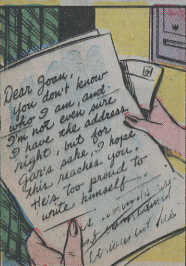 Dear Joan,
You don't know
who I am, and
I'm not even sure
I have the address
right, but for
Gar's sake, I hope
this reaches you.
He's too proud to
write himself.